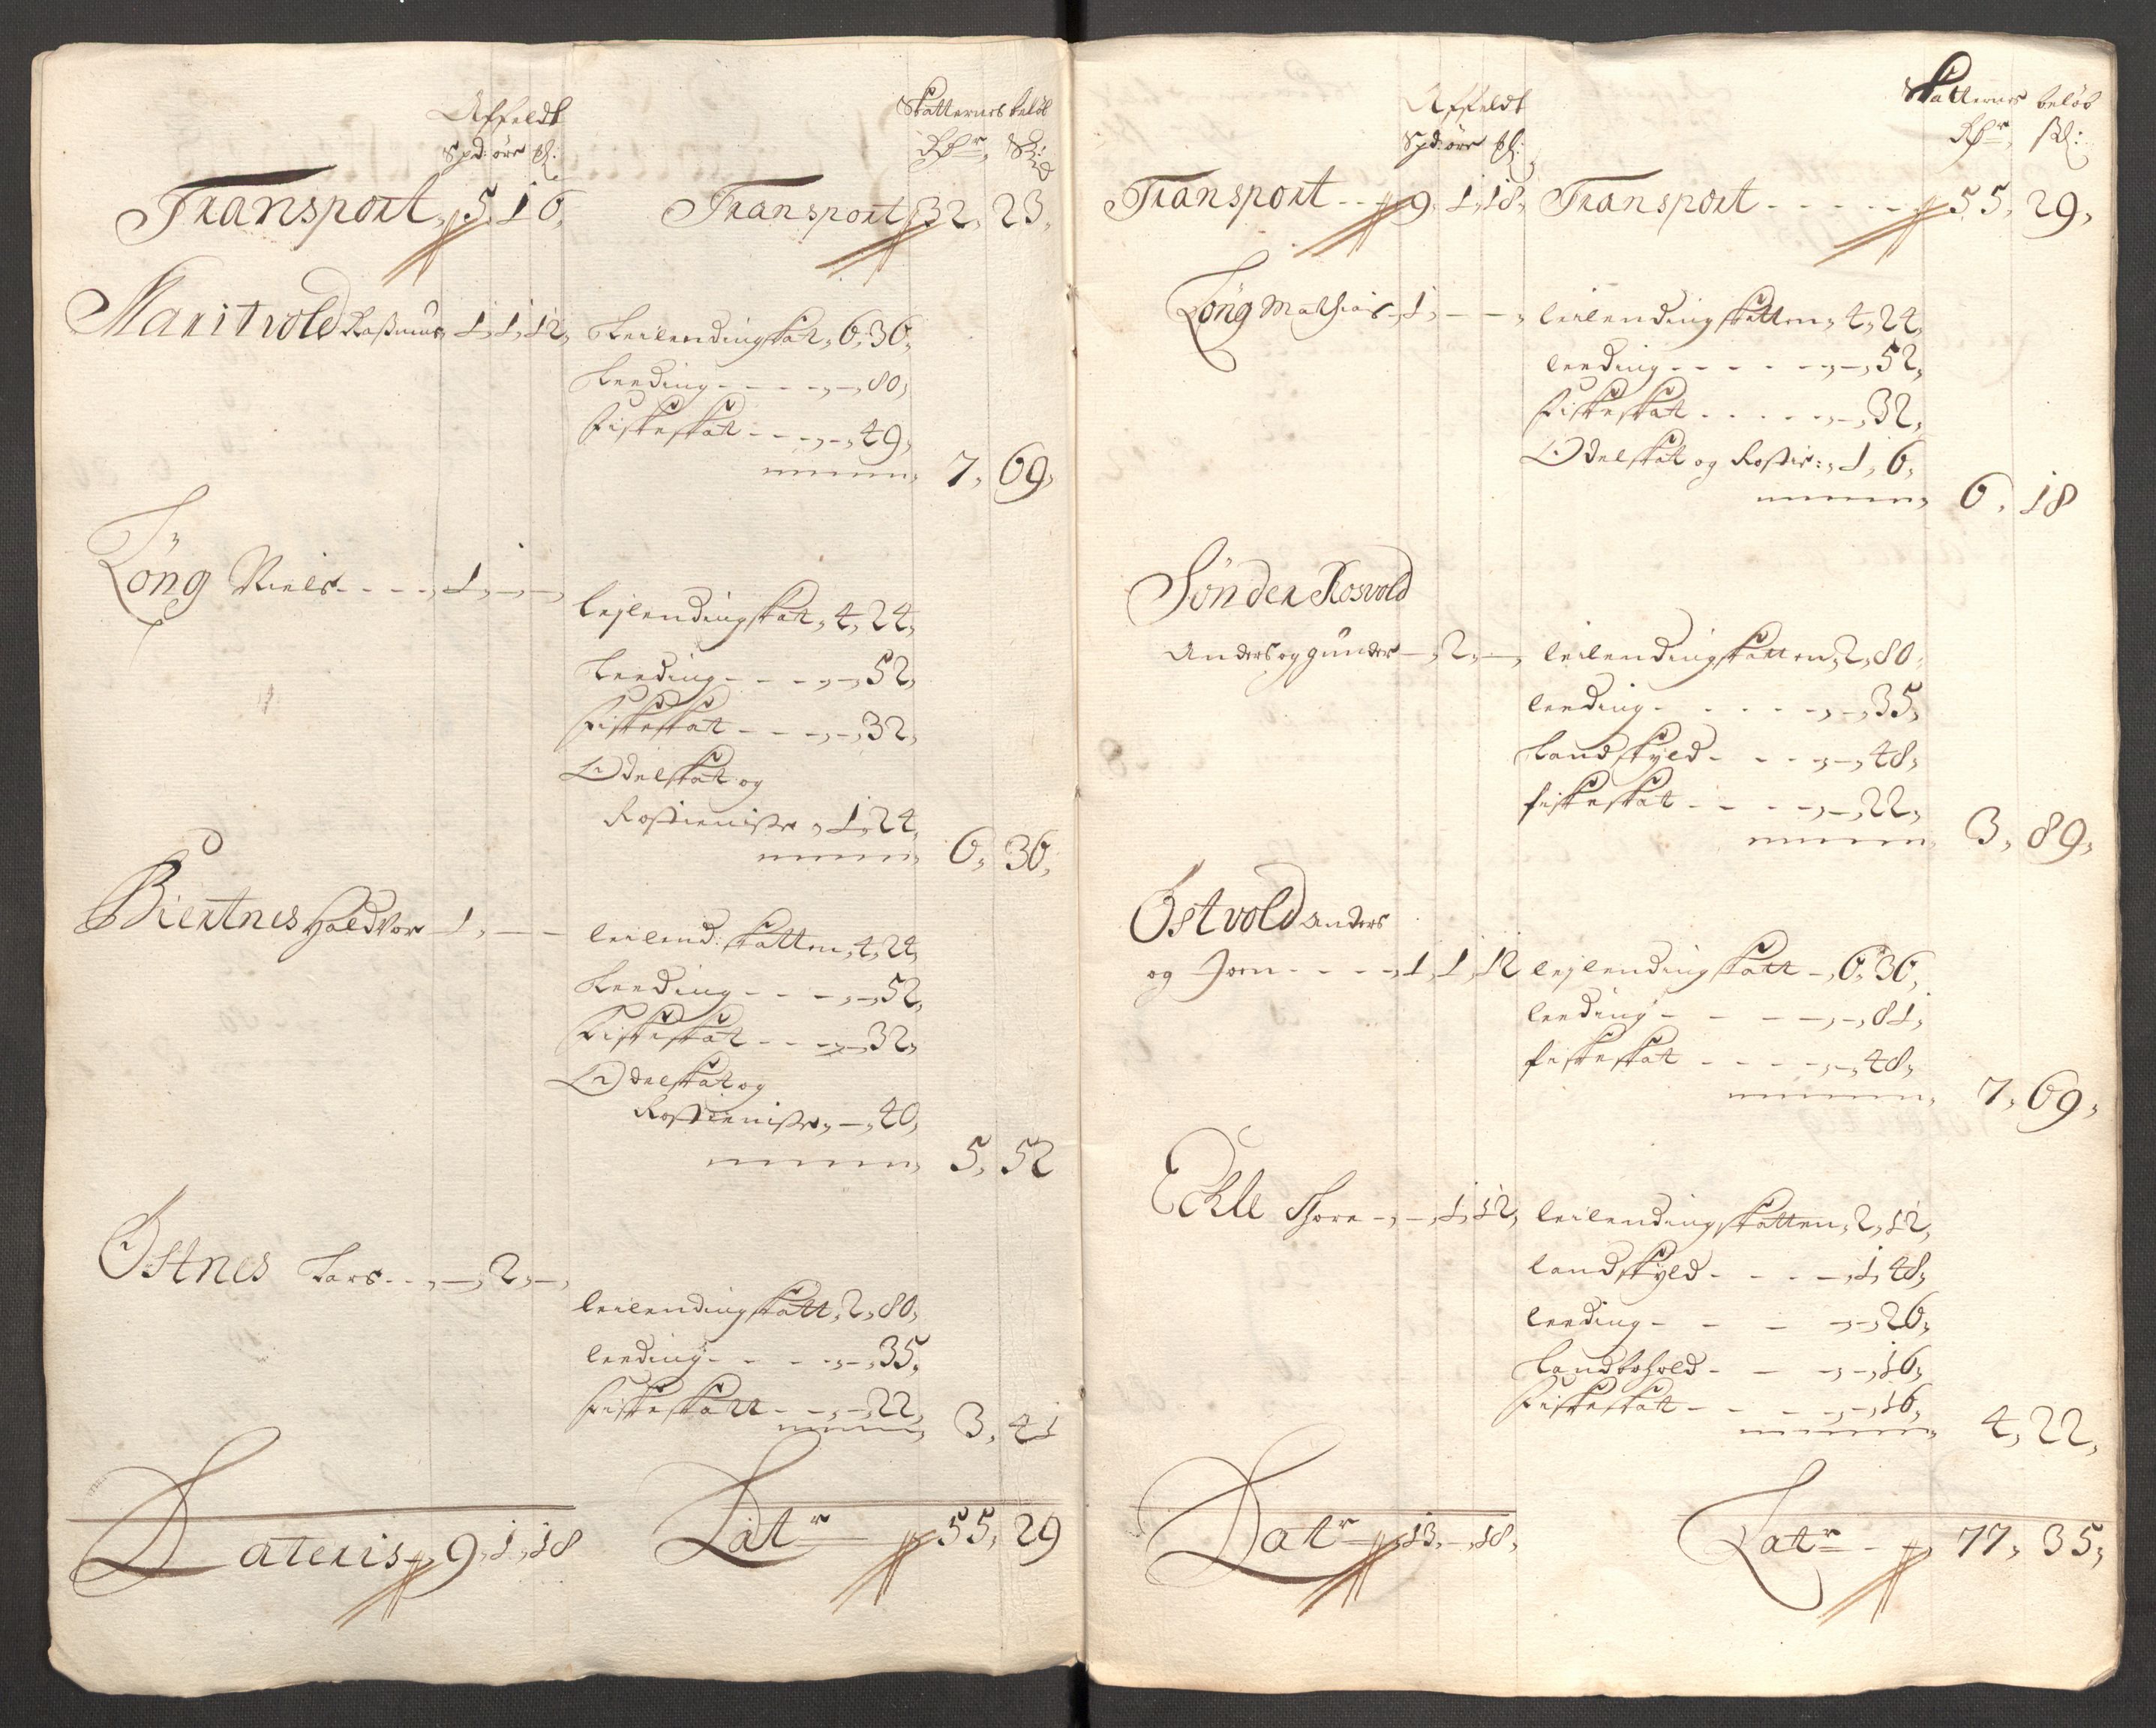 Affeldt Skatternes beløb
Spd: øre ßl: Rdr, Sk:
Transport 5, 1 6, Transport 32, 23,
Maritvold Rasmus, 1, 1, 12, Leilendingskat, 6, 36,
Leeding - - - , - , 80,
Fiskeskat - - - , - , 49,
7, 69,
Løng Niels - - - , 1, -, -,
lejlendingskat, 4, 24,
Leeding - - - , - , 52,
Fiskeskat - - - , - , 32,
Odelskat og
Rostieniste, 1, 24,
6, 36,
Biertnes Haldvor - 1, - -
leilend: skatten, 4, 24,
Leeding - - - , - , 52,
Fiskeskat - - - , - , 32,
Odelskat og
Rostieniste, - , 40,
5, 52
Østnes Lars - - , - , 2, - ,
leilendingskatt, 2, 80,
leeding - - - , - , 35,
Fiskeskatt - - , - , 22,
3, 41
Lateris 9, 1, 18 Latr 55, 29
Affeldt Skatternes beløb
Spd: øre ßl: Rdr, ßl:
Transport - - 9, 1, 18, Transport - - - - - 55, 29,
Løng Mathias, 1, - -, leilendingskatten, 4, 24,
leeding - - - - , - , 52,
Fiskeskat - - - - , - , 32,
Odelskat og Rostie:, 1, 6,
6, 18
Sønder Rosvold
Anders og gunder - , 2, - , leilendingskatten, 2, 80,
leeding - - - - , - , 35,
Landskyld - - - , - , 48,
fiskeskat - - - , - , 22,
3, 89,
Østvold Anders
og Joen - - - - , 1, 1, 12 lejlendingskatt - , 6, 36,
leeding - - - - , - , 81,
fiskeskat - - - - , - , 48,
7, 69,
Echle Thore - , - , 1, 12, leilendingskatten, 2, 12,
landskyld - - - - , 1, 48,
leeding - - - , - , 26,
Landbohold - - , - , 16,
Fiskeskat - - - , - , 16,
4, 22,
Latr 13, - , 18, Latr - - , 77, 35,